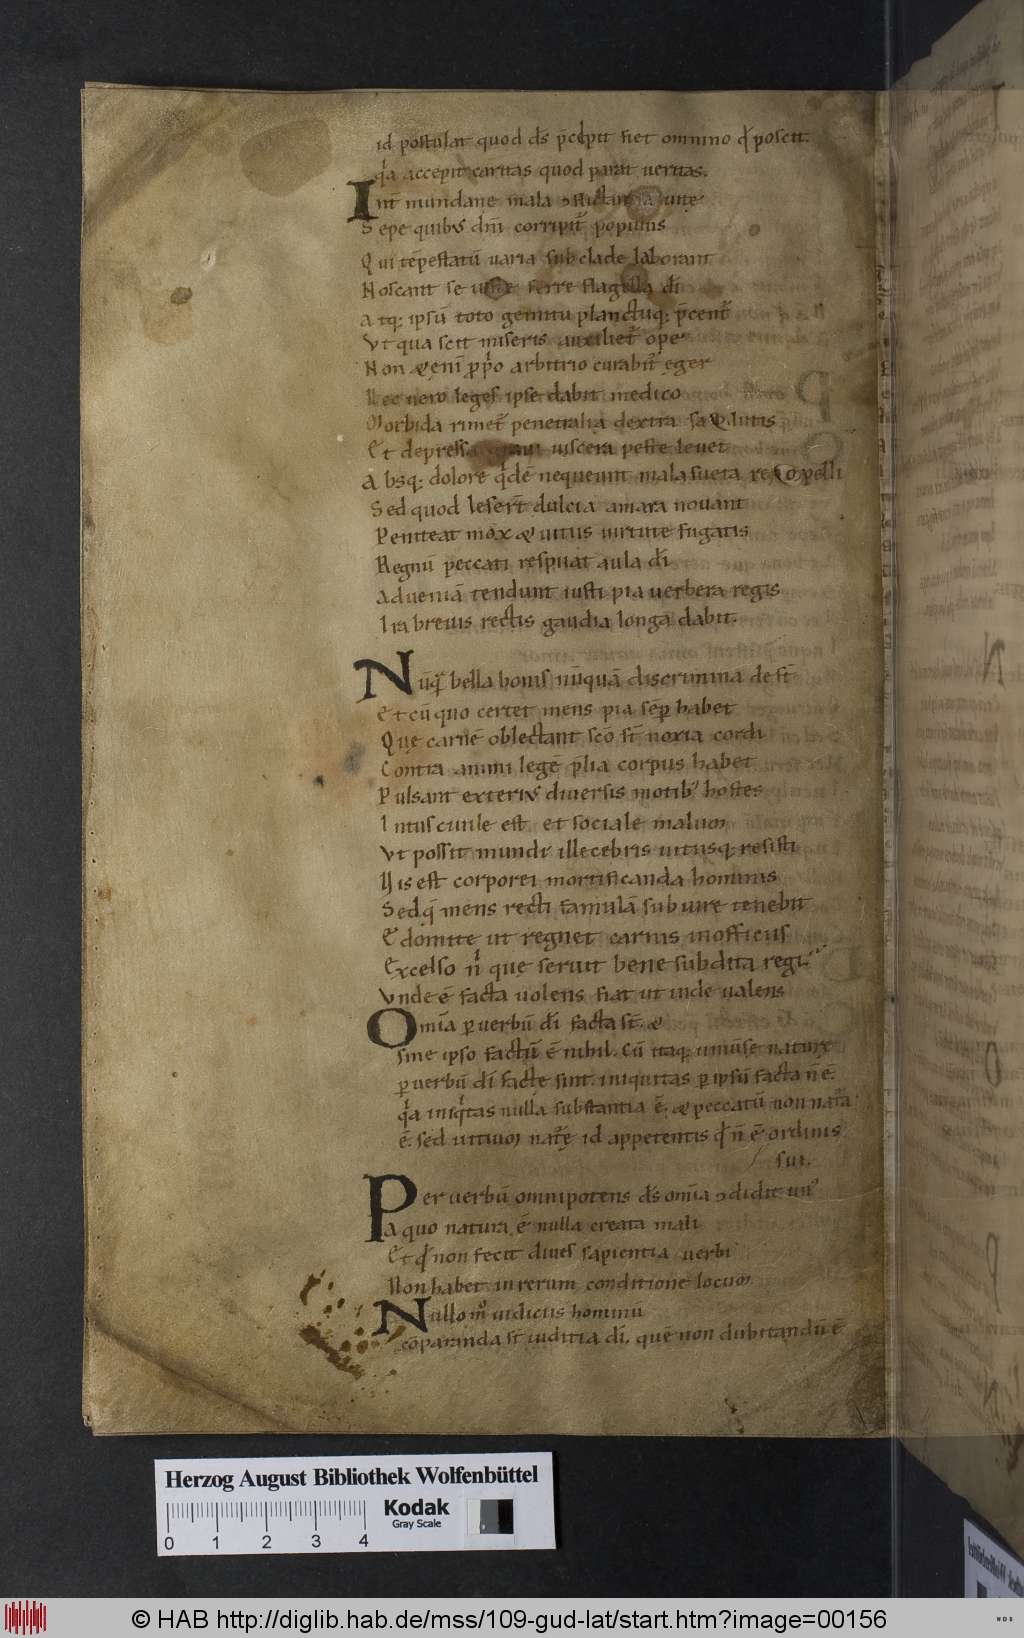 id postulat quod ds p̄cepit fiet omnino qd̄ poscit.
q̓a accepit caritas quod parat ueritas.
Int̄ mundanę mala ↄflictantia uitę
Sepe quibꝰ dn̄i corripit᷑ populus
Qui tēpestatū uaria sub clade laborant
Noscant se ferre flagella dī
Atq; ipsū toto gemitu planctuq; p̄cent᷑
Vt qua scit miseris auxiliet᷑ ope
Non & enī ꝓp̓o arbitrio curabit᷑ ęger
Nec uero leges ipse dabit medico
Morbida rimet᷑ penetralia dextra salutis
Et depressa graui uiscera peste leuet
Absq; dolore q̓dē nequeunt mala sueta repelli
Sed quod leser̄t dulcia amara nouant
Peniteat mox & uitiis uirtute fugatis
Regnū peccati respuat aula dī
Ad ueniā tendunt iusti pia uerbera regis
Ira breuis rectis gaudia longa dabit.
Nūq̄ bella bonis nūquā discrimina dest̄
Et cū quo certet mens pia sēꝑ habet
Quę carnē oblectant scō st̄ noxia cordi
Contra animi legē p̄lia corpus habet
Pulsant exteriꝰ diuersis motibꝰ hostes
Intus ciuile est et sociale malum
Vt possit mundi illecebris uitiisq; resisti
Uis est corporei mortificanda hominis
Sed q̄ mens recti famulā sub iure tenebit
Et domitę ut regnet carnis inofficiis
Excelso n̓ que seruit bene subdita regi
Vnde ē facta uolens fiat ut inde ualens
Omīa ꝑ uerbū dī facta st̄. &
sine ipso factū ē nihil. Cū itaq; uniuersę naturę
ꝑ uerbū dī facte sint. iniquitas ꝑ ipsū facta n̄ ē.
q̓a iniq̓tas nulla substantia ē. & peccatū non nat᷑a
ē. sed uitium nat᷑ę id appetentis qd̄ n̄ ē ordinis
sui.
Per uerbū omnipotens ds omīa ↄdidit unꝰ
A quo natura ē nulla creata mali
Et qd̄ non fecit diues sapientia uerbi
Non habet in rerum conditione locum
Nullo m̊ iudiciis hominū
cōparanda st̄ iuditia dī. quē non dubitandū ē
Herzog August Bibliothek Wolfenbüttel
Kodak
Gray Scale
0 1 2 3 4
© HAB http://diglib.hab.de/mss/109-gud-lat/start.htm?image=00156
WDB